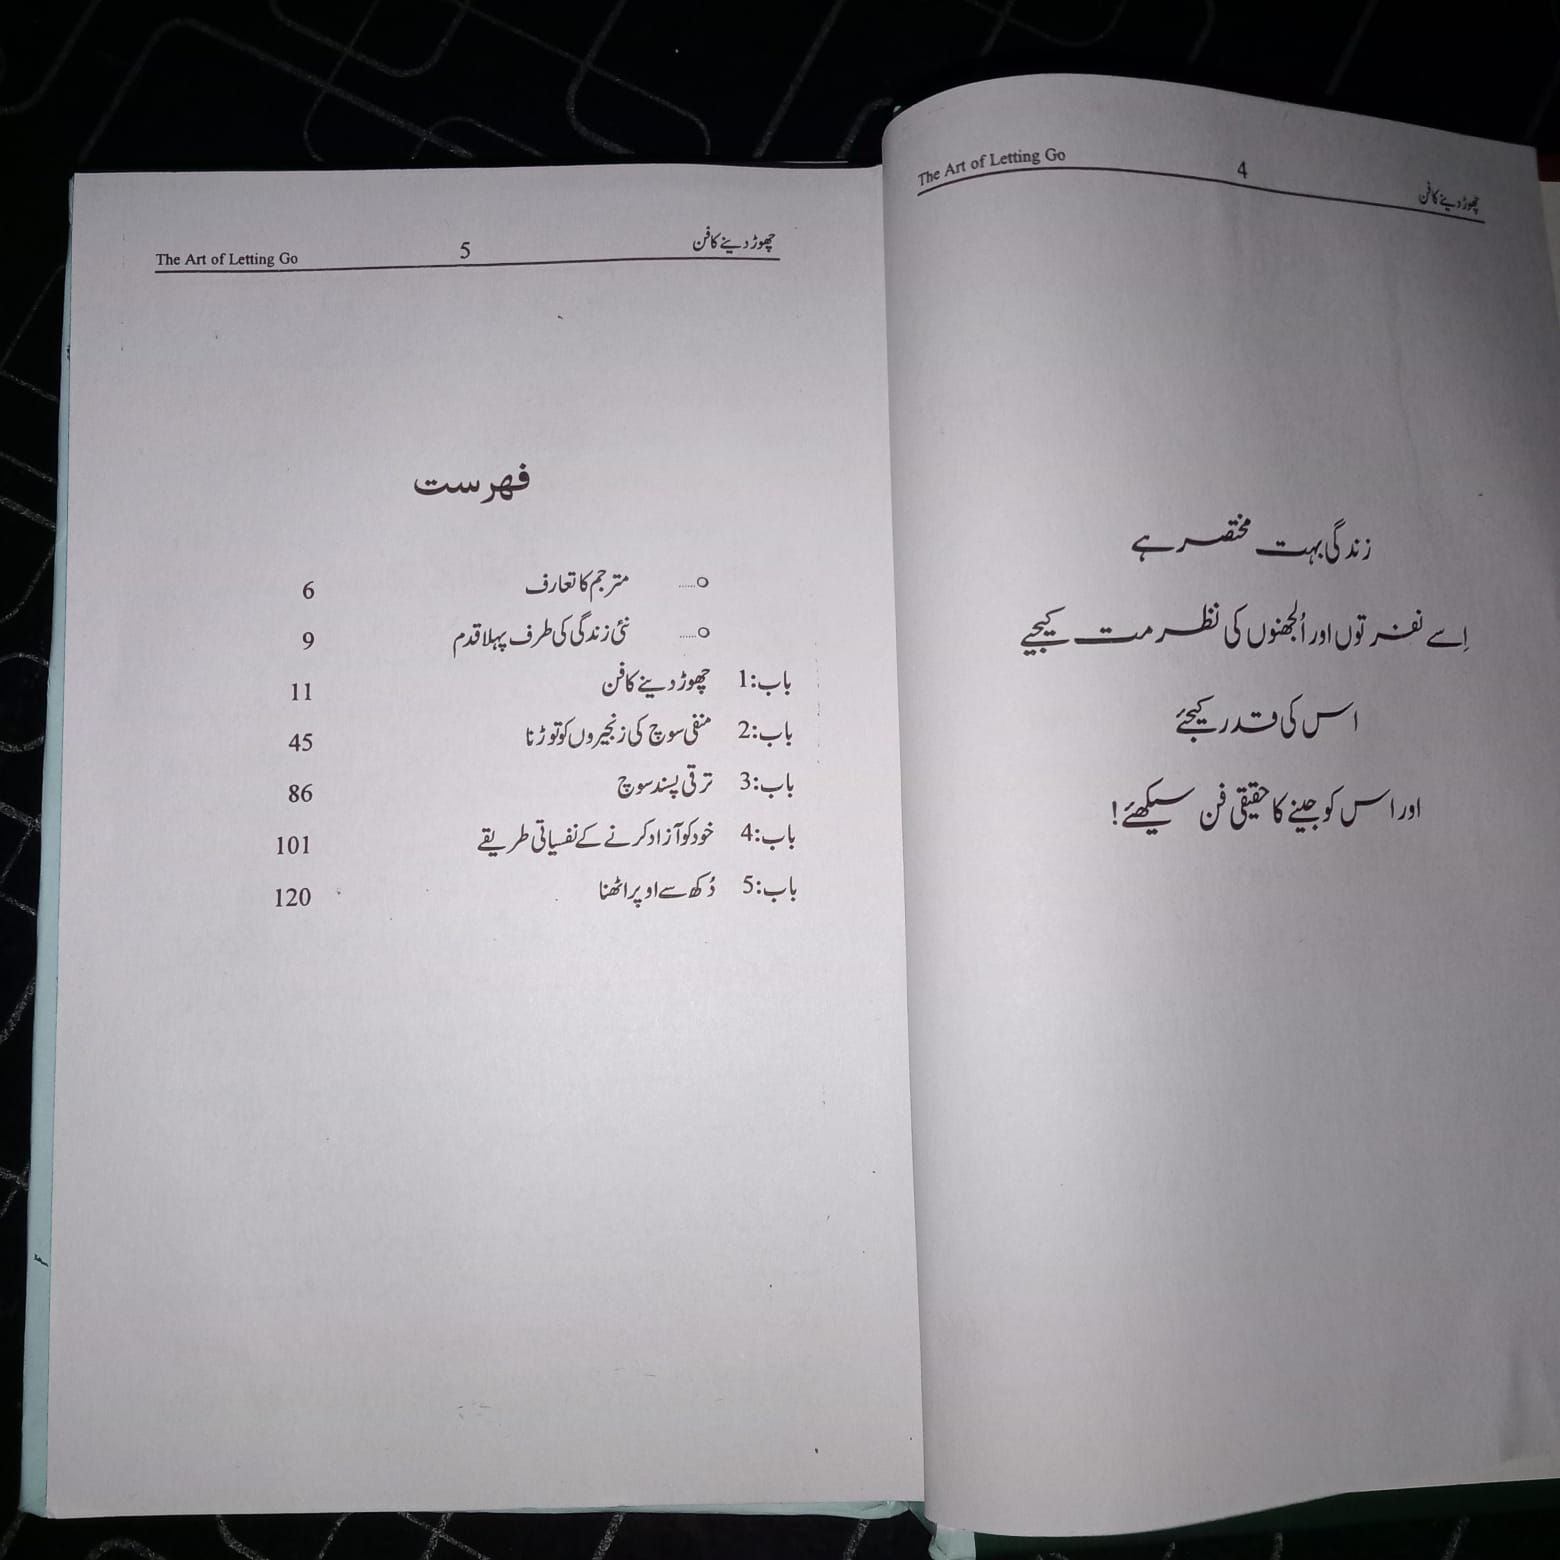 The Art of Letting Go 4 چھوڑ دینے کا فن
زندگی بہت مختصر ہے
اِسے نفرتوں اور اُلجھنوں کی نظر مت کیجیے
اس کی قدر کیجئے
اور اس کو جینے کا حقیقی فن سیکھئے!
The Art of Letting Go 5 چھوڑ دینے کا فن
فہرست
o..... مترجم کا تعارف 6
o..... نئی زندگی کی طرف پہلا قدم 9
باب:1 چھوڑ دینے کا فن 11
باب:2 منفی سوچ کی زنجیروں کو توڑنا 45
باب:3 ترقی پسند سوچ 86
باب:4 خود کو آزاد کرنے کے نفسیاتی طریقے 101
باب:5 دُکھ سے اوپر اٹھنا 120